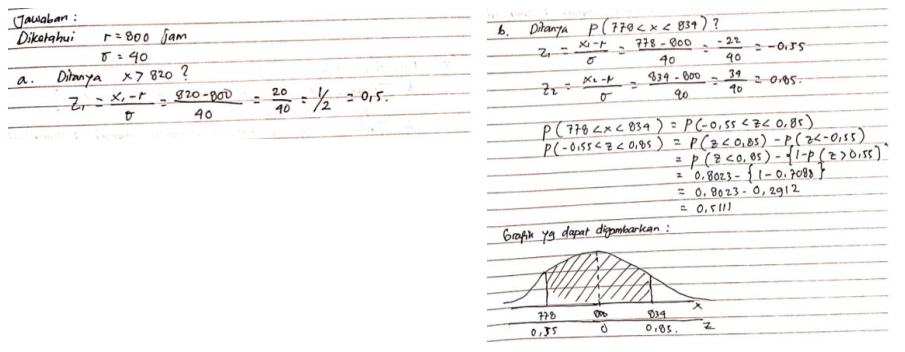 Jawaban :
Diketahui r = 800 jam
σ = 40
a. Ditanya x > 820 ?
Z₁ = x₁ - r / σ = 820 - 800 / 40 = 20 / 40 = 1/2 = 0,5.
b. Ditanya P(778 < x < 834) ?
Z₁ = x₁ - r / σ = 778 - 800 / 40 = -22 / 40 = -0,55
Z₂ = x₂ - r / σ = 834 - 800 / 40 = 34 / 40 = 0,85.
P(778 < x < 834) = P(-0,55 < z < 0,85)
P(-0,55 < z < 0,85) = P(z < 0,85) - P(z < -0,55)
= P(z < 0,85) - {1 - P(z > 0,55)}
= 0,8023 - {1 - 0,7088}
= 0,8023 - 0,2912
= 0,5111
Grafik yg dapat digambarkan :
778 800 834 x
0,55 0 0,85. z